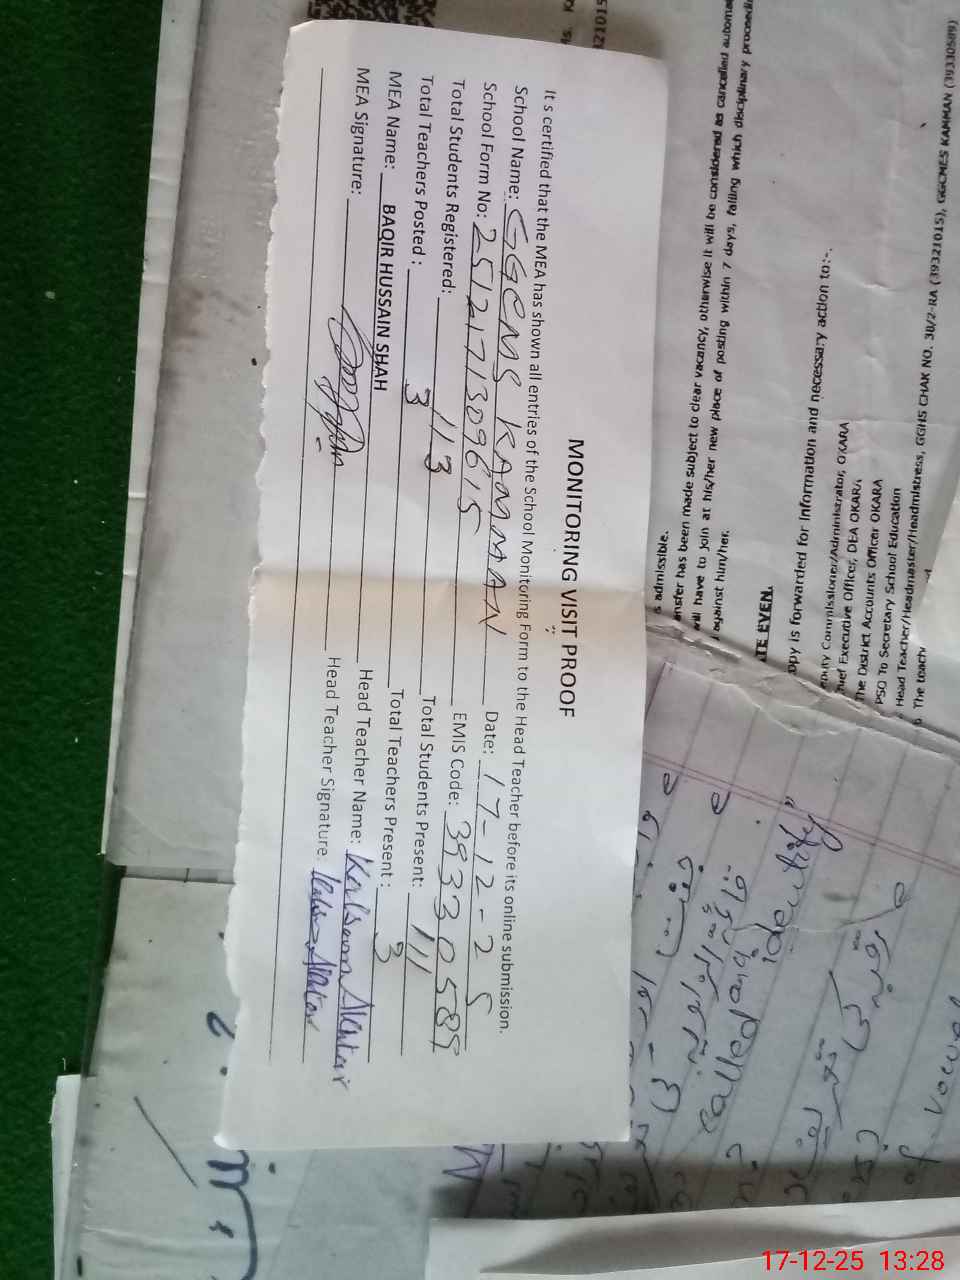 MONITORING VISIT PROOF
It s certified that the MEA has shown all entries of the School Monitoring Form to the Head Teacher before its online submission.
School Name: GGCMS KAMMAN Date: 17-12-25
School Form No: 2512171309615 EMIS Code: 39330589
Total Students Registered: 113 Total Students Present: 111
Total Teachers Posted : 3 Total Teachers Present : 3
MEA Name: BAQIR HUSSAIN SHAH Head Teacher Name: Kalsoom Akhtar
MEA Signature: Head Teacher Signature:
s admissible.
ansfer has been made subject to clear vacancy, otherwise it will be considered as cancelled automa
will have to join at his/her new place of posting within 7 days, failing which disciplinary proceedin
against him/her.
TE EVEN.
opy is forwarded for information and necessary action to:-
puty Commissioner/Administrator, OKARA
hief Executive Officer, DEA OKARA
The District Accounts Officer OKARA
PSO To Secretary School Education
Head Teacher/Headmaster/Headmistress, GGHS CHAK NO. 38/2-RA (39321015), GGCMES KAMMAN (39330589)
The teach
identify"
called
of vowel
17-12-25 13:28